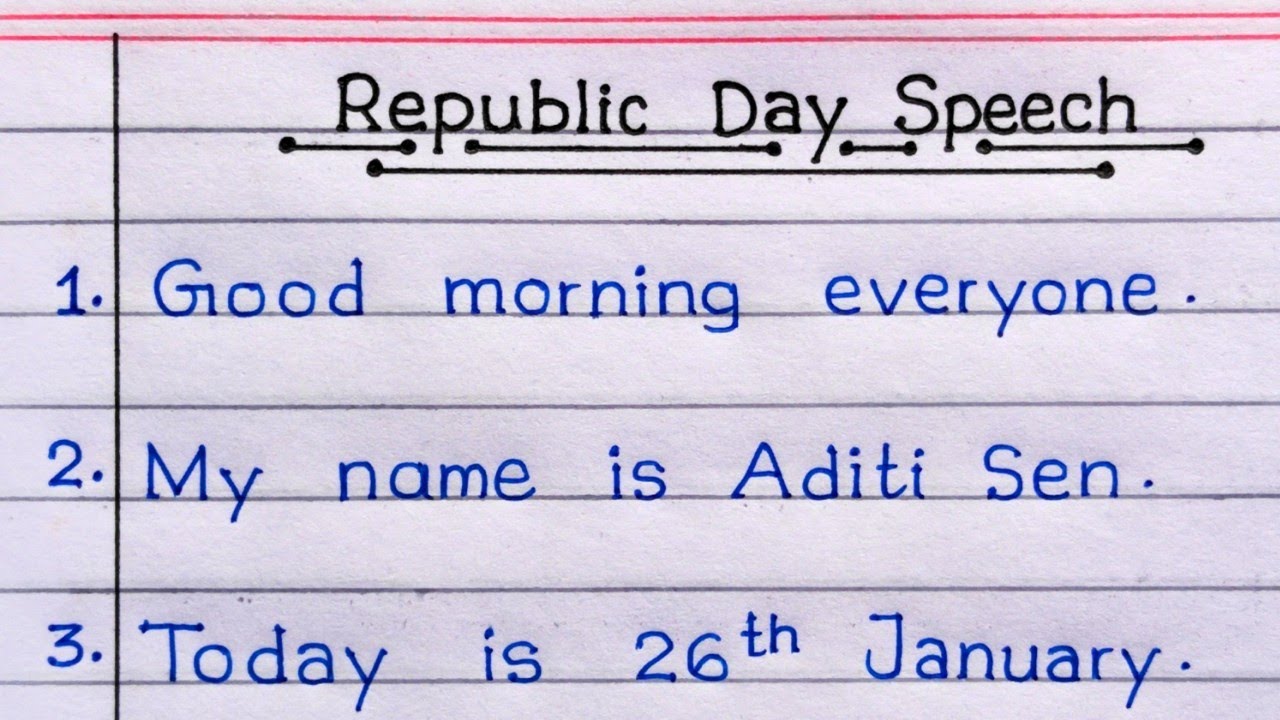 Republic Day Speech
1. Good morning everyone.
2. My name is Aditi Sen.
3. Today is 26th January.